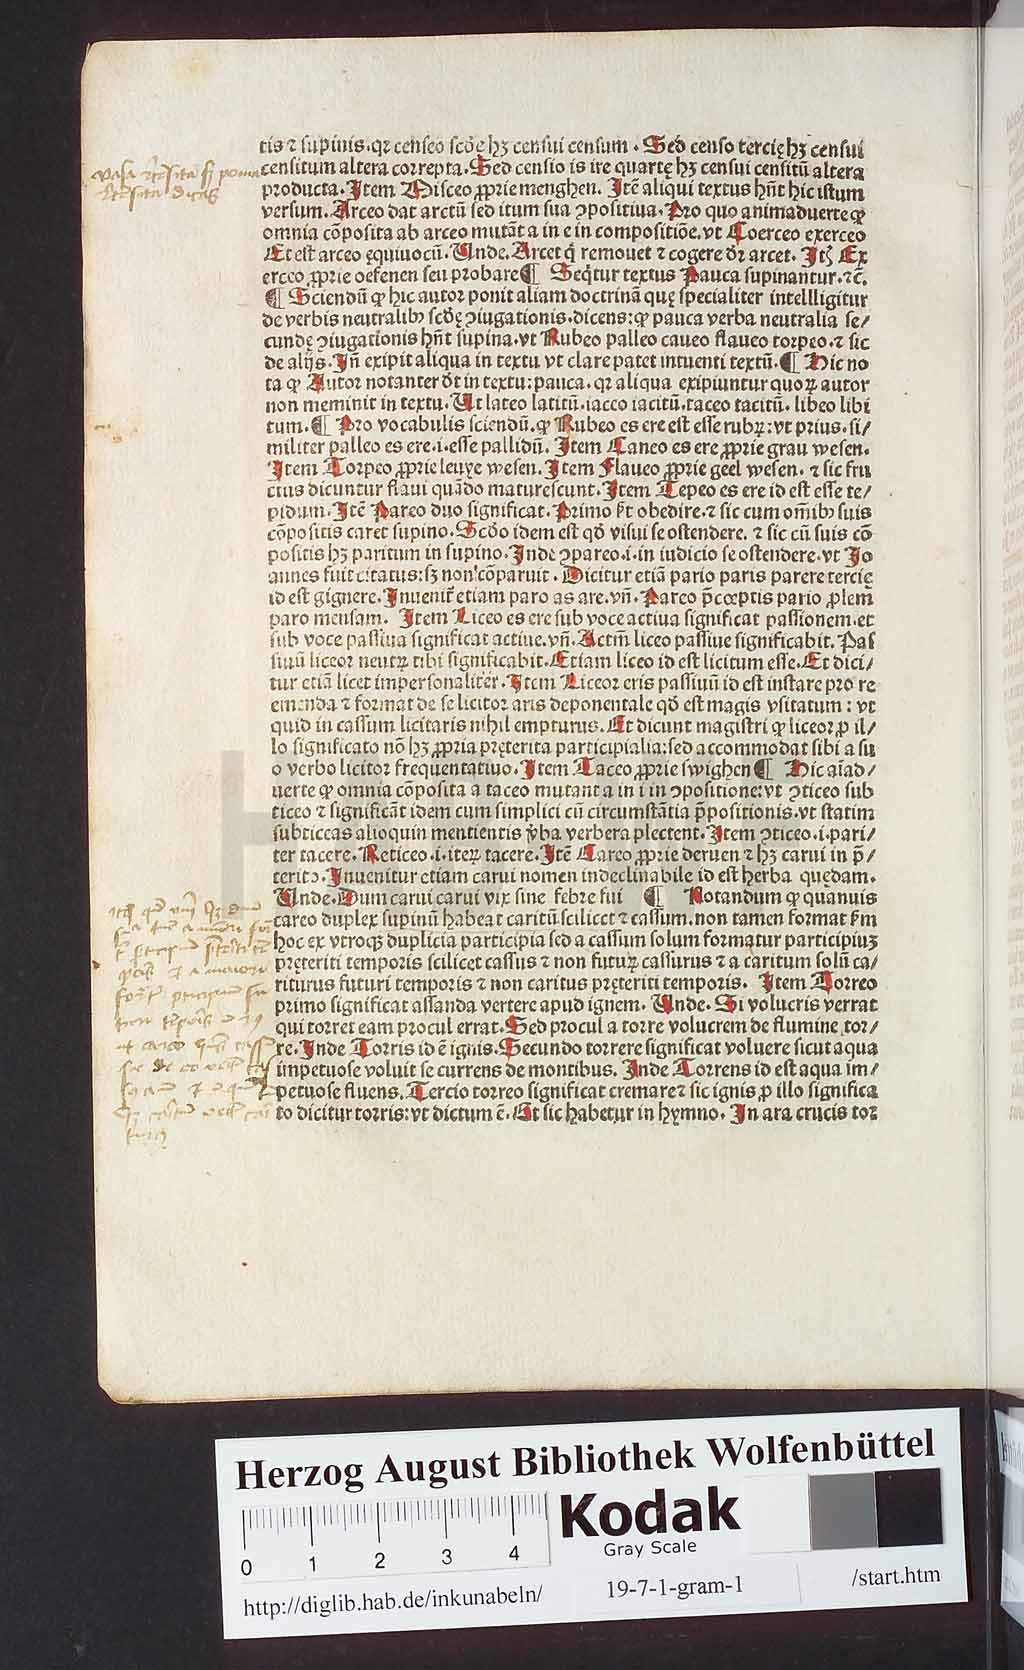 tis ⁊ supinis. qꝛ censeo scd̓ę hꝫ censui censum. Sed censo tercię hꝫ censui
censitum altera correpta. Sed censio is ire quartę hꝫ censui censitū altera
producta. Item Misceo ꝓprie menghen. Itē aliqui textus hn̄t hic istum
versum. Arceo dat arctū sed itum sua ↄpositiua. Pro quo animaduerte ꝙ
omnia cōposita ab arceo mutāt a in e in compositiōe. vt Coerceo exerceo
Et est arceo ęquiuocū. Unde. Arcet q̇ remouet ⁊ cogere dr̄ arcet. Itꝫ Ex
erceo ꝓprie oefenen seu probare ¶ Seq̄tur textus Pauca supinantur. ⁊c̄.
¶ Sciendū ꝙ hic autor ponit aliam doctrinā quę specialiter intellligitur
de verbis neutralibꝰ scd̓ę ↄiugationis. dicens: ꝙ pauca verba neutralia se/
cundę ↄiugationis hn̄t supina. vt Rubeo palleo caueo flaueo torpeo. ⁊ sic
de alijs. In̄ exipit aliqua in textu vt clare patet intuenti textū. ¶ Hic no
ta ꝙ Autor notanter dt̄ in textu: pauca. qꝛ aliqua exipiuntur quoꝝ autor
non meminit in textu. Ut lateo latitū. iacco iacitū. taceo tacitū. libeo libi
tum. ¶ Pro vocabulis sciendū. ꝙ Rubeo es ere est esse rubꝝ: vt prius. si/
militer palleo es ere. i. esse pallidū. Item Caneo es ere ꝓprie grau wesen.
Item Torpeo ꝓprie leuye wesen. Item Flaueo ꝓprie geel wesen. ⁊ sic fru
ctus dicuntur flaui quādo maturescunt. Item Tepeo es ere id est esse te/
pidum. Itē Pareo duo significat. Primo ſt̄ obedire. ⁊ sic cum om̄ibꝰ suis
cōpositis caret supino. Scd̓o idem est qd̓ visui se ostendere. ⁊ sic cū suis cō
positis hꝫ paritum in supino. Inde ↄpareo. i. in iudicio se ostendere. vt Jo
annes fuit citatus: sꝫ non cōparuit. Dicitur etiā pario paris parere tercię
id est gignere. Inuenit᷑ etiam paro as are. vn̄. Pareo p̄cœptis pario ꝓlem
paro mensam. Item Liceo es ere sub voce actiua significat passionem. et
sub voce passiua significat actiue. vn̄. Actīn liceo passiue significabit. Pas
siuū liceor neutꝝ tibi significabit. Etiam liceo id est licitum esse. Et dici/
tur etiā licet impersonaliter. Item Liceor eris passiuū id est instare pro re
emenda ⁊ format de se licitor aris deponentale qd̓ est magis vsitatum: vt
quid in cassum licitaris nihil empturus. Et dicunt magistri ꝙ liceor ꝑ il/
lo significato nō hꝫ ꝓpria pręterita participialia: sed accommodat sibi a su
o verbo licitor frequentatiuo. Item Taceo ꝓprie swighen ¶ Hic aīad/
uerte ꝙ omnia cōposita a taceo mutant a in i in ↄpositione: vt ↄticeo sub
ticeo ⁊ significāt idem cum simplici cū circumstātia p̄positionis. vt statim
subticcas alioquin mentientis v̓ba verbera plectent. Item ↄticeo. i. pari/
ter tacere. Reticeo. i. iteꝝ tacere. Itē Careo ꝓprie deruen ⁊ hꝫ carui in p̄/
teritↄ. Inuenitur etiam carui nomen indeclinabile id est herba quędam.
Unde. Dum carui carui vix sine febre fui ¶ Notandum ꝙ quanuis
careo duplex supinū habeat caritū scilicet ⁊ cassum. non tamen format ſm̄
hoc ex vtroqꝫ duplicia participia sed a cassum solum formatur participiuꝫ
pręteriti temporis scilicet cassus ⁊ non futuꝝ cassurus ⁊ a caritum solū ca/
riturus futuri temporis ⁊ non caritus pręteriti temporis. Item Torreo
primo significat assanda vertere apud ignem. Unde. Si volucris verrat
qui torret eam procul errat. Sed procul a torre volucrem de flumine tor/
re. Inde Torris id ē ignis. Secundo torrere significat voluere sicut aqua
impetuose voluit se currens de montibus. Inde Torrens id est aqua im/
petuose fluens. Tercio torreo significat cremare ⁊ sic ignis ꝑ illo significa
to dicitur torris: vt dictum ē. Et sic habetur in hymno. In ara crucis tor
Herzog August Bibliothek Wolfenbüttel
0 1 2 3 4
Kodak
Gray Scale
http://diglib.hab.de/inkunabeln/ 19-7-1-gram-1 /start.htm